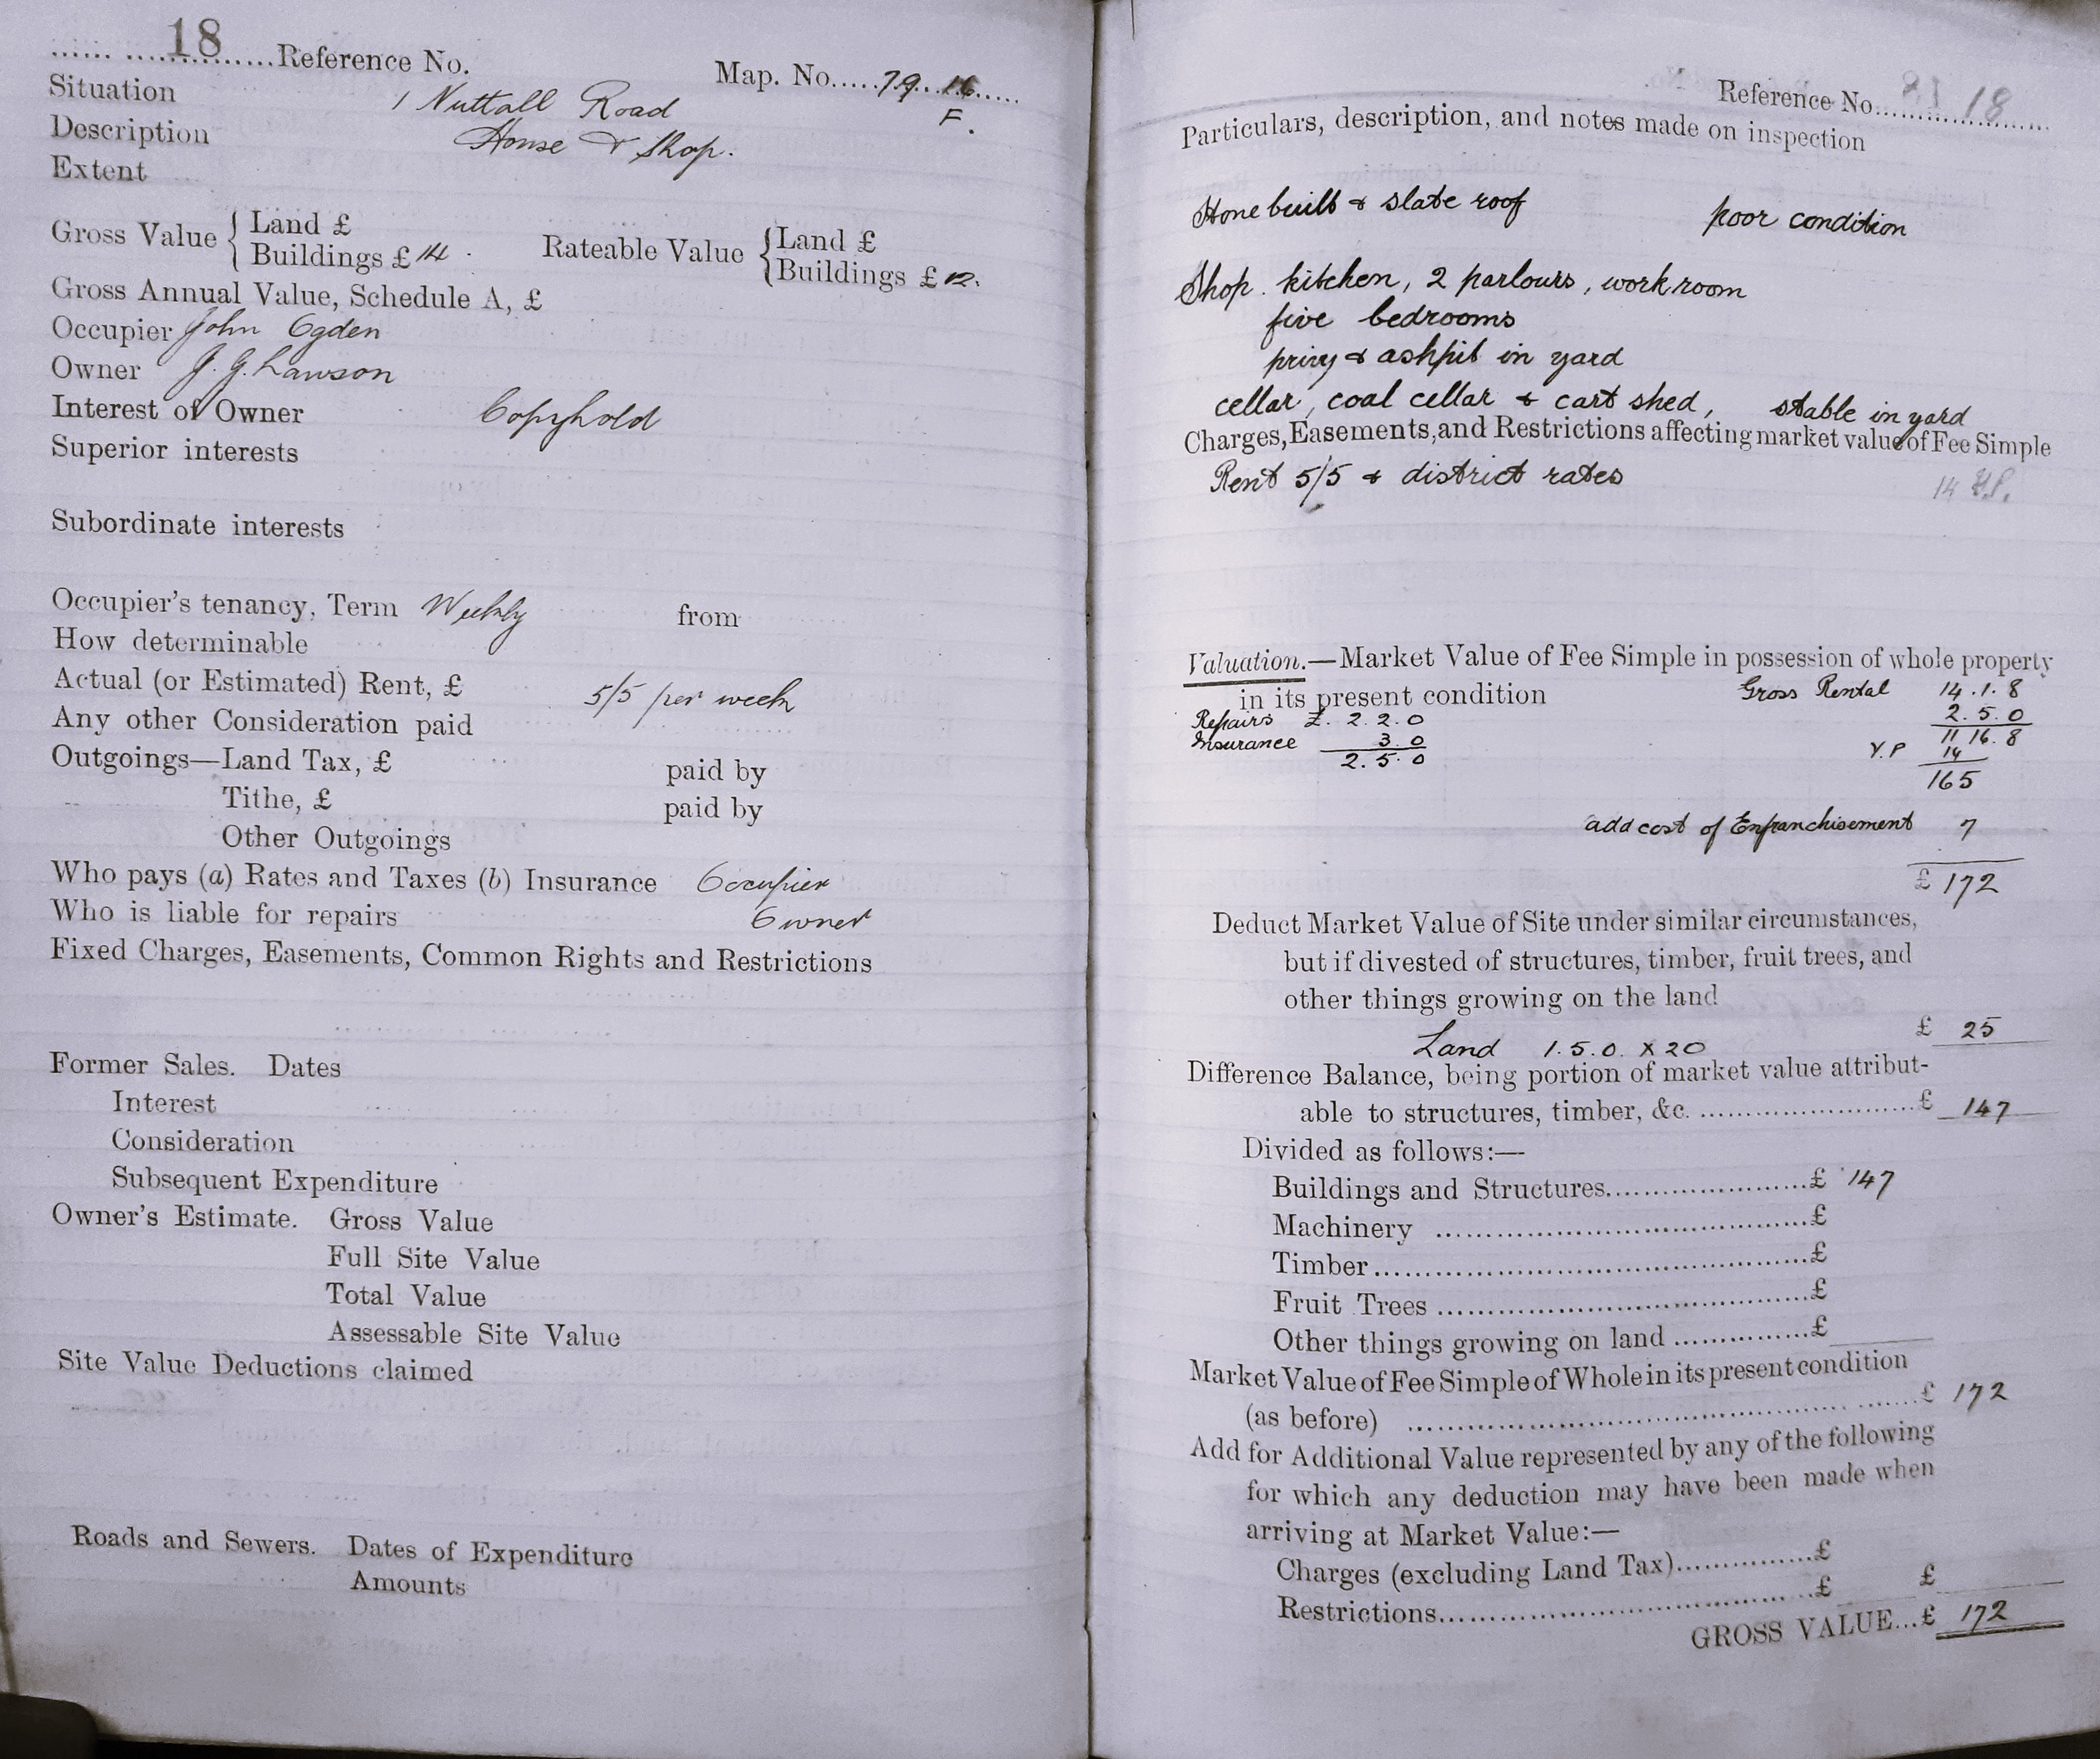 18 Reference No. Map. No. 79.16
Situation 1 Nuttall Road F.
Description House & Shop.
Extent
Gross Value { Land £
Buildings £ 14. Rateable Value { Land £
Buildings £ 12.
Gross Annual Value, Schedule A, £
Occupier John Ogden
Owner J. G. Lawson
Interest of Owner Copyhold
Superior interests
Subordinate interests
Occupier's tenancy, Term Weekly from
How determinable
Actual (or Estimated) Rent, £ 5/5 per week
Any other Consideration paid
Outgoings—Land Tax, £ paid by
Tithe, £ paid by
Other Outgoings
Who pays (a) Rates and Taxes (b) Insurance Occupier
Who is liable for repairs Owner
Fixed Charges, Easements, Common Rights and Restrictions
Former Sales. Dates
Interest
Consideration
Subsequent Expenditure
Owner's Estimate. Gross Value
Full Site Value
Total Value
Assessable Site Value
Site Value Deductions claimed
Roads and Sewers. Dates of Expenditure
Amounts
Reference No. 18
Particulars, description, and notes made on inspection
Stone built & slate roof poor condition
Shop. kitchen, 2 parlours, workroom
five bedrooms
privy & ashpit in yard
cellar, coal cellar & cart shed, stable in yard
Charges, Easements, and Restrictions affecting market value of Fee Simple
Rent 5/5 & district rates 14 Y.P.
Valuation.—Market Value of Fee Simple in possession of whole property
in its present condition Gross Rental 14.1.8
Repairs £. 2.2.0 2.5.0
Insurance 3.0 11 16.8
2.5.0 Y.P 14
165
add cost of Enfranchisement 7
£ 172
Deduct Market Value of Site under similar circumstances,
but if divested of structures, timber, fruit trees, and
other things growing on the land
Land 1.5.0. x 20 £ 25
Difference Balance, being portion of market value attribut-
able to structures, timber, &c. £ 147
Divided as follows:—
Buildings and Structures £ 147
Machinery £
Timber £
Fruit Trees £
Other things growing on land £
Market Value of Fee Simple of Whole in its present condition
(as before) £ 172
Add for Additional Value represented by any of the following
for which any deduction may have been made when
arriving at Market Value:—
Charges (excluding Land Tax) £
Restrictions £ £
GROSS VALUE...£ 172